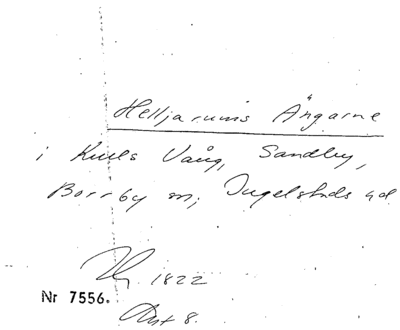 Helljarums Ängarne
i Kuels Vång, Sandby,
Borrby sn, Ingelstads hd
1822
Nr 7556.
Akt 8.